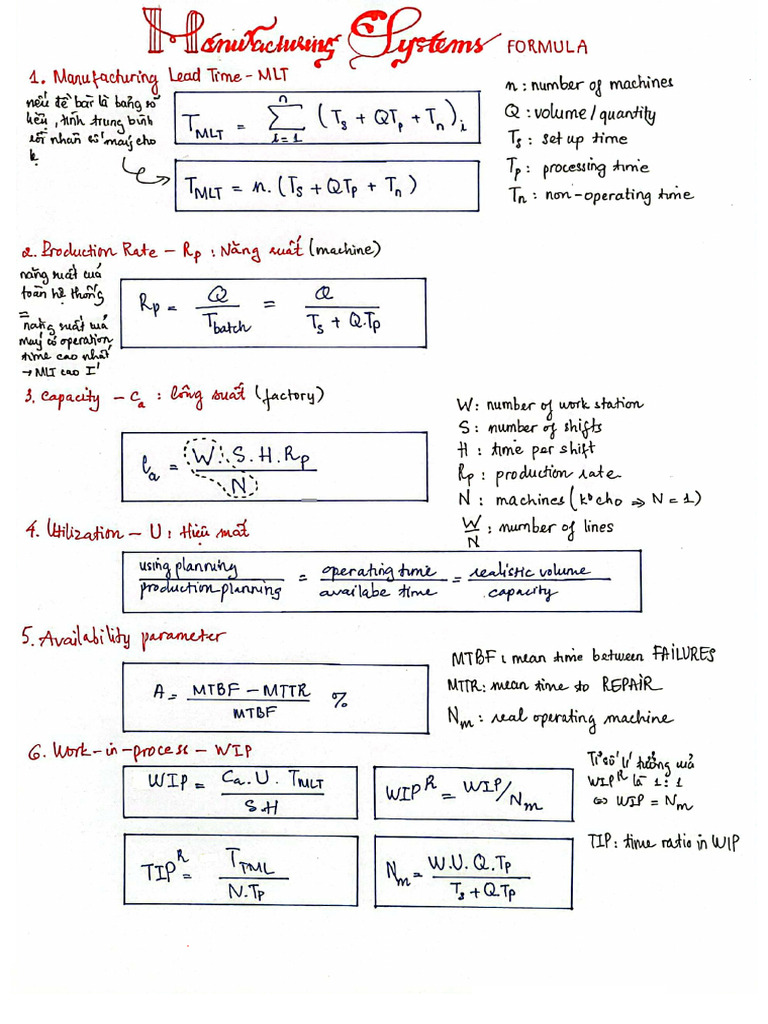 Manufacturing Systems FORMULA
1. Manufacturing Lead Time - MLT
nếu đề bài là bảng số
liệu, tính trung bình
rồi nhân số máy cho
T_MLT = Σ_{i=1}^{n} (T_s + QT_p + T_n)_i
T_MLT = n.(T_s + QT_p + T_n)
n : number of machines
Q : volume / quantity
T_s : set up time
T_p : processing time
T_n : non-operating time
2. Production Rate - R_p : Năng suất (machine)
năng suất của
toàn hệ thống
=
năng suất của
máy có operation
time cao nhất
→ MLT cao I'
R_p = Q / T_batch = Q / (T_s + Q.T_p)
3. Capacity - C_a : Công suất (factory)
C_a = W.S.H.R_p / N
W : number of work station
S : number of shifts
H : time per shift
R_p : production rate
N : machines (k° cho ⇒ N = 1)
W/N : number of lines
4. Utilization - U : Hiệu suất
using planning / production planning = operating time / availabe time = realistic volume / capacity
5. Availability parameter
A = (MTBF - MTTR) / MTBF %
MTBF : mean time between FAILURES
MTTR : mean time to REPAIR
N_m : real operating machine
6. Work-in-process - WIP
WIP = C_a.U.T_MLT / S.H
WIP^R = WIP/N_m
Tỉ số lí tưởng của
WIP^R là 1:1
⇔ WIP = N_m
TIP^R = T_TML / N.T_p
N_m = W.U.Q.T_p / (T_s + QT_p)
TIP : time ratio in WIP